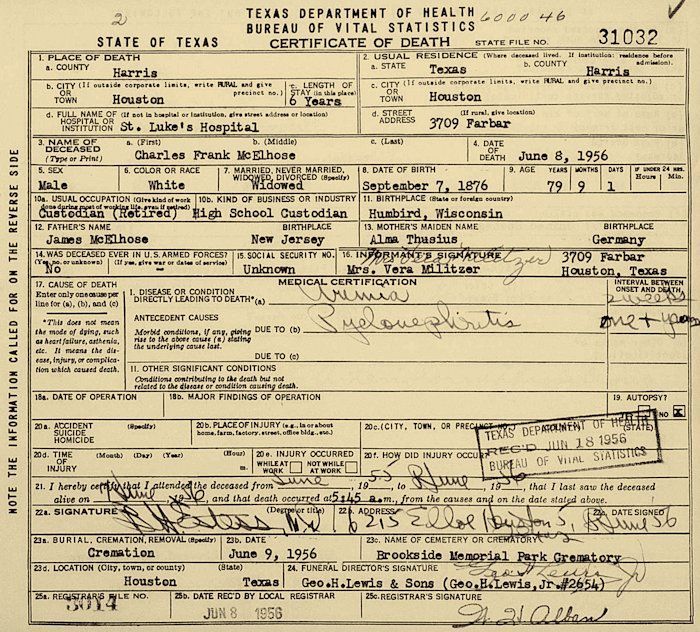 2
TEXAS DEPARTMENT OF HEALTH
6000 46
BUREAU OF VITAL STATISTICS
STATE OF TEXAS
CERTIFICATE OF DEATH
STATE FILE NO. 31032
NOTE THE INFORMATION CALLED FOR ON THE REVERSE SIDE
1. PLACE OF DEATH
a. COUNTY
Harris
2. USUAL RESIDENCE (Where deceased lived. If institution: residence before admission).
a. STATE Texas b. COUNTY Harris
b. CITY (If outside corporate limits, write RURAL and give precinct no.)
OR
TOWN Houston
c. LENGTH OF STAY (in this place)
6 Years
c. CITY (If outside corporate limits, write RURAL and give precinct no.)
OR
TOWN Houston
d. FULL NAME OF (If not in hospital or institution, give street address or location)
HOSPITAL OR
INSTITUTION St. Luke's Hospital
d. STREET (If rural, give location)
ADDRESS 3709 Farbar
3. NAME OF DECEASED (Type or Print)
a. (First) b. (Middle) c. (Last)
Charles Frank McElhose
4. DATE OF DEATH June 8, 1956
5. SEX
Male
6. COLOR OR RACE
White
7. MARRIED, NEVER MARRIED, WIDOWED, DIVORCED (Specify)
Widowed
8. DATE OF BIRTH
September 7, 1876
9. AGE YEARS MONTHS DAYS IF UNDER 24 HRS. Hours Min.
79 9 1
10a. USUAL OCCUPATION (Give kind of work done during most of working life, even if retired)
Custodian (Retired)
10b. KIND OF BUSINESS OR INDUSTRY
High School Custodian
11. BIRTHPLACE (State or foreign country)
Humbird, Wisconsin
12. FATHER'S NAME BIRTHPLACE
James McElhose New Jersey
13. MOTHER'S MAIDEN NAME BIRTHPLACE
Alma Thusius Germany
14. WAS DECEASED EVER IN U.S. ARMED FORCES?
(Yes, no, or unknown) (If yes, give war or dates of service)
No
15. SOCIAL SECURITY NO.
Unknown
16. INFORMANT'S SIGNATURE
Militzer
Mrs. Vera Militzer
3709 Farbar
Houston, Texas
17. CAUSE OF DEATH
Enter only one cause per line for (a), (b), and (c)
*This does not mean the mode of dying, such as heart failure, asthenia, etc. It means the disease, injury, or complication which caused death.
MEDICAL CERTIFICATION
INTERVAL BETWEEN ONSET AND DEATH
I. DISEASE OR CONDITION
DIRECTLY LEADING TO DEATH* (a) Uremia 2 weeks
ANTECEDENT CAUSES
Morbid conditions, if any, giving rise to the above cause (a) stating the underlying cause last.
DUE TO (b) Pyelonephiritis one + years
DUE TO (c)
11. OTHER SIGNIFICANT CONDITIONS
Conditions contributing to the death but not related to the disease or condition causing death.
18a. DATE OF OPERATION
18b. MAJOR FINDINGS OF OPERATION
19. AUTOPSY?
NO X
20a. ACCIDENT SUICIDE HOMICIDE (Specify)
20b. PLACE OF INJURY (e.g., in or about home, farm, factory, street, office bldg., etc.)
20c. (CITY, TOWN, OR PRECINCT NO.) (STATE)
TEXAS DEPARTMENT OF HEALTH
REC'D JUN 18 1956
BUREAU OF VITAL STATISTICS
20d. TIME OF INJURY (Month) (Day) (Year) (Hour) m.
20e. INJURY OCCURRED
WHILE AT WORK NOT WHILE AT WORK
20f. HOW DID INJURY OCCUR
21. I hereby certify that I attended the deceased from June, 1955, to 8 June, 1956, that I last saw the deceased
alive on June, 1956, and that death occurred at 5:45 a.m., from the causes and on the date stated above.
22a. SIGNATURE (Degree or title)
22b. ADDRESS
22c. DATE SIGNED
M.D. 6215 Houston 5, 8 June 56
23a. BURIAL, CREMATION, REMOVAL (Specify)
Cremation
23b. DATE
June 9, 1956
23c. NAME OF CEMETERY OR CREMATORY
Brookside Memorial Park Crematory
23d. LOCATION (City, town, or county) (State)
Houston Texas
24. FUNERAL DIRECTOR'S SIGNATURE
Geo. H. Lewis Jr
Geo.H.Lewis & Sons (Geo.H.Lewis,Jr.#2654)
25a. REGISTRAR'S FILE NO.
3014
25b. DATE REC'D BY LOCAL REGISTRAR
JUN 8 1956
25c. REGISTRAR'S SIGNATURE
W. H. Alban